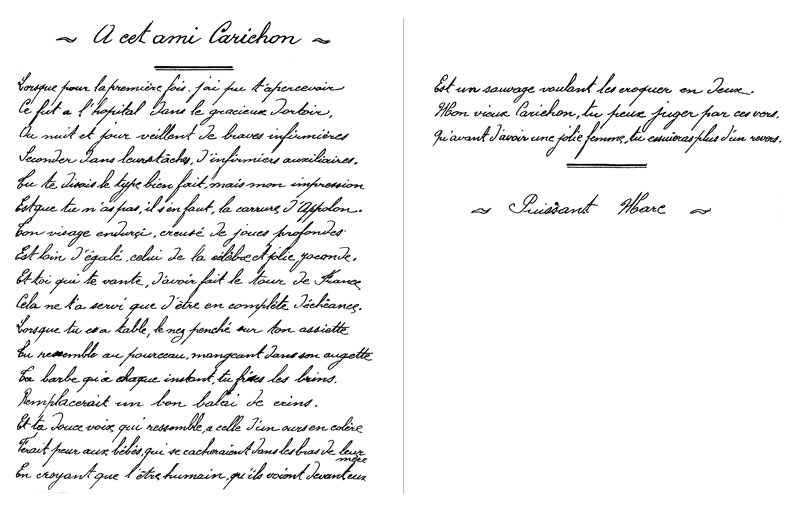 A cet ami Carichon
Lorsque pour la première fois. j'ai pu t'apercevoir
Ce fut a l'hopital dans le gracieux dortoir,
Ou nuit et jour veillent de braves infirmières
Seconder dans leurs tâches, d'infirmiers auxiliaires.
Tu te disais le type bien fait, mais mon impression
Est que tu n'as pas, il s'en faut, la carrure d'Appolon.
Ton visage endurçi, creusé de joues profondes
Est loin d'égalé, celui de la célèbre et jolie joconde.
Et toi qui te vante, d'avoir fait le tour de France
Cela ne t'a servi que d'être en complète déchéance.
Lorsque tu es a table, le nez penché sur ton assiette
Tu ressemble au pourceau, mangeant dans son augette
Ta barbe qu'a chaque instant, tu frises les brins.
Remplacerait un bon balai de crins.
Et ta douce voix, qui ressemble, a celle d'un ours en colère
Ferait peur aux bébés, qui se cacheraient dans les bras de leur mère
En croyant que l'être humain, qu'ils voient devant eux
Est un sauvage voulant les croquer en deux.
Mon vieux Carichon, tu peux juger par ces vers.
Qu'avant d'avoir une jolie femme, tu essuieras plus d'un revers.
Puissant Marc